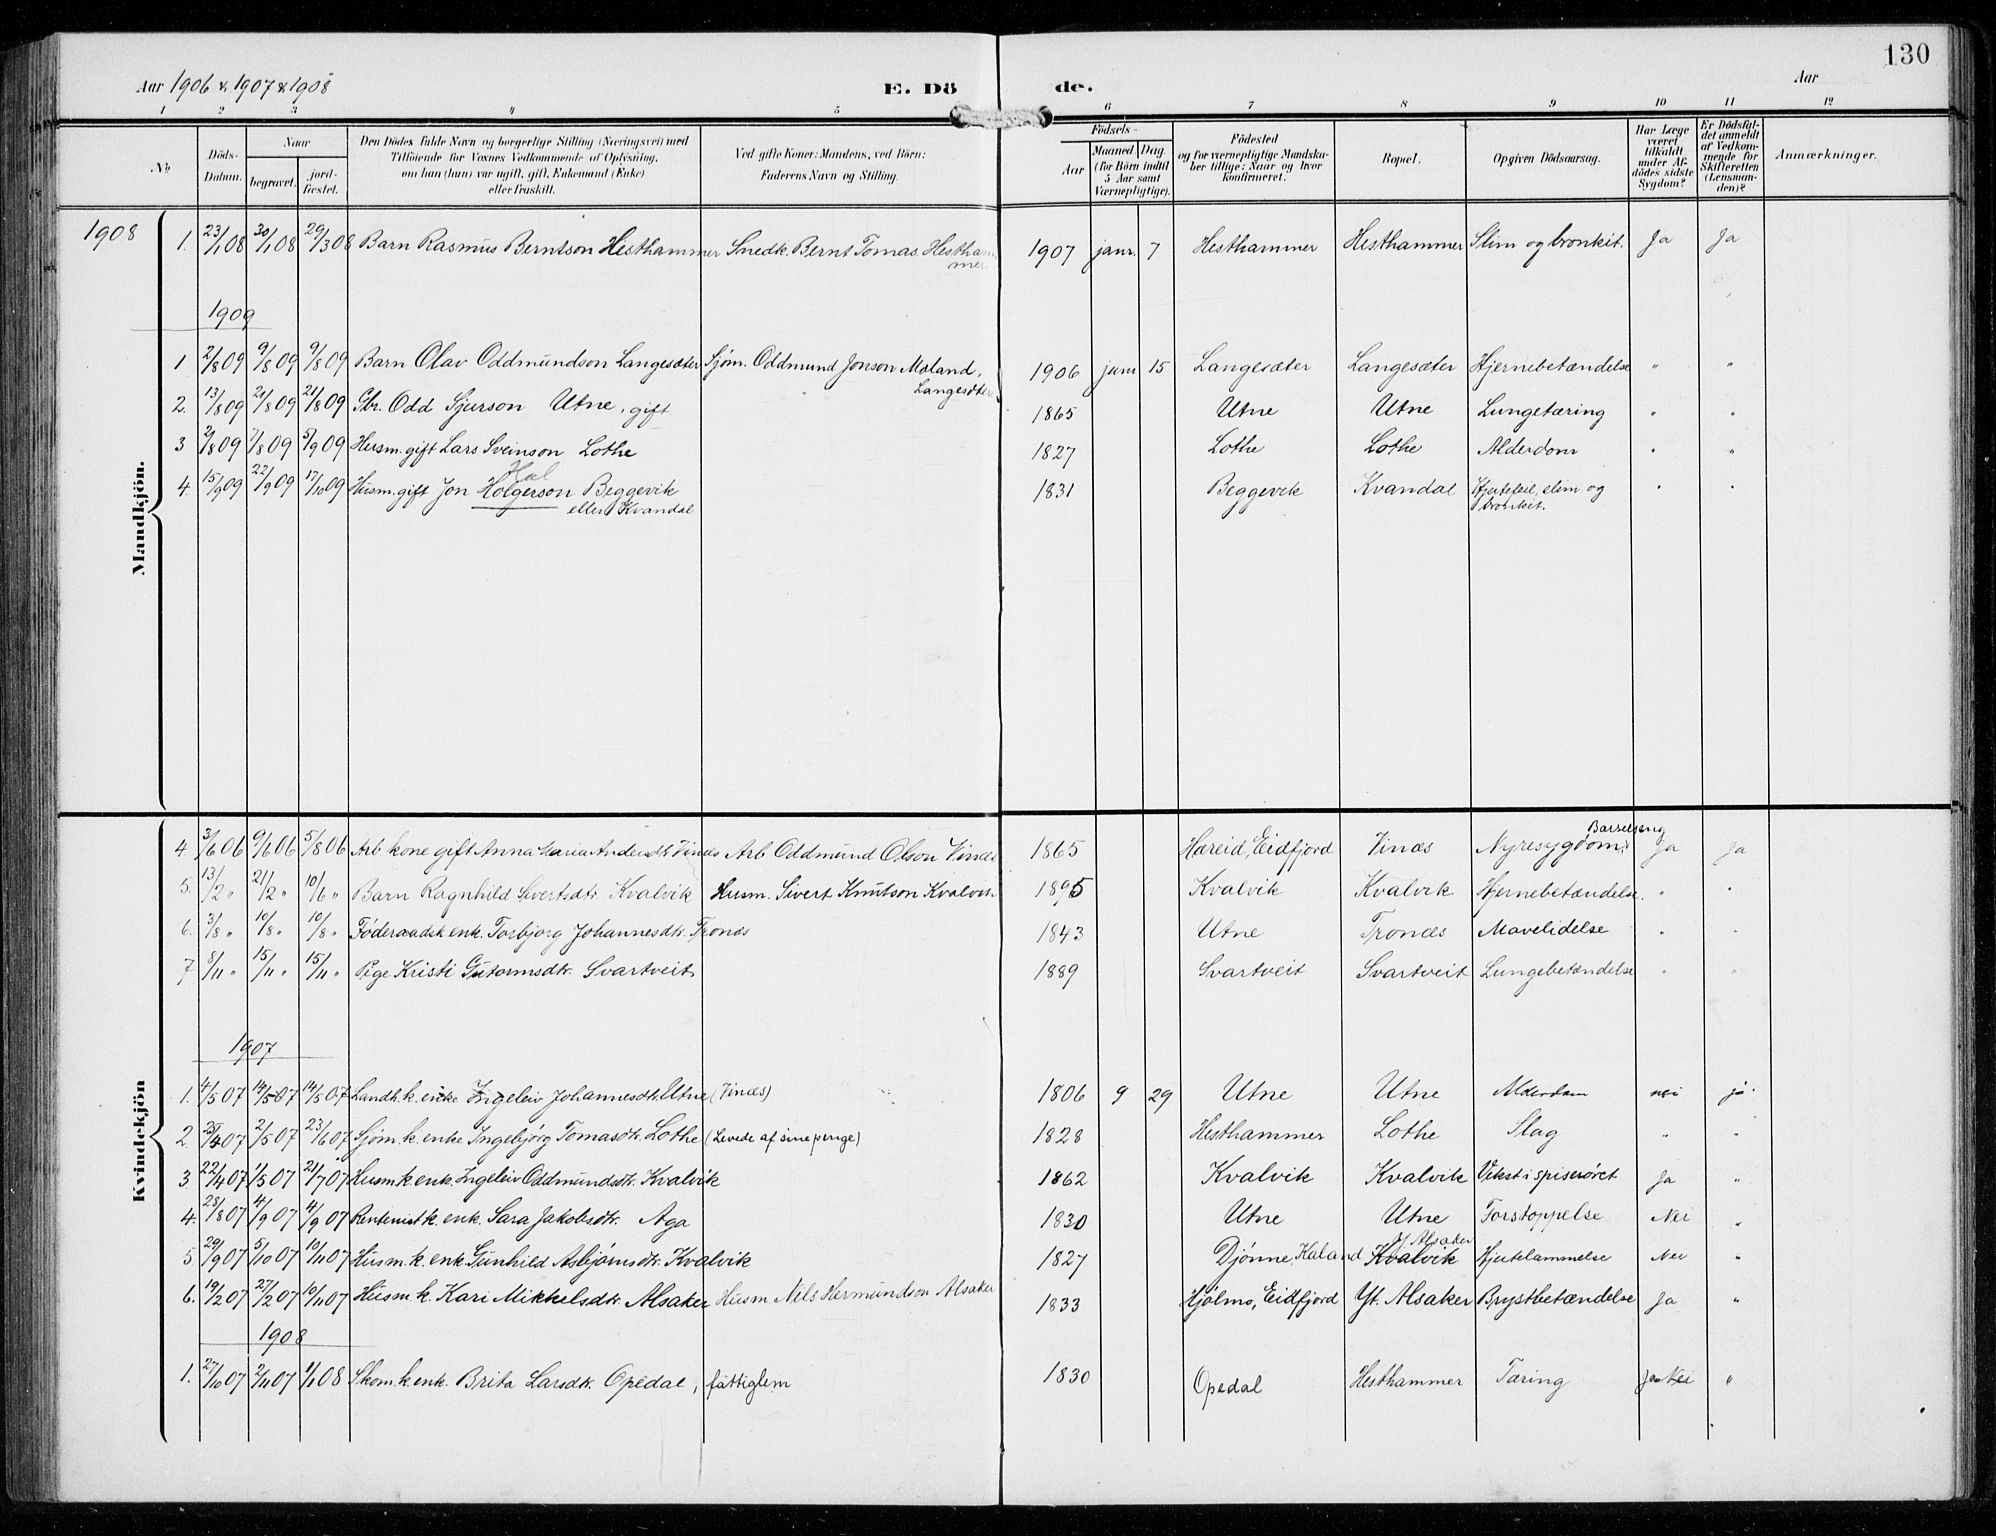 130
Aar 1906 & 1907 & 1908 E. Dö de. Aar
1 2 3 4 5 6 7 8 9 10 11 12
No Döds-Datum. Naar begravet. jord-fæstet. Den Dödes fulde Navn og borgerlige Stilling (Næringsvei) med Tilföiende for Voxnes Vedkommende af Oplysning, om han (hun) var ugift, gift, Enkemand (Enke) eller fraskilt. Ved gifte Koner: Mandens, ved Börn: Faderens Navn og Stilling. Födsels- Aar Maaned Dag (for Börn indtil 5 Aar samt Værnepligtige). Födested og for værnepligtige Mandskaber tillige: Naar og hvor konfirmeret. Bopæl. Opgiven Dödsaarsag. Har Læge været tilkaldt under Afdödes sidste Sygdom? Er Dödsfaldet anmeldt af Vedkommende for Skifteretten (Lensmanden)? Anmærkninger.
Mandkjön.
1908 1. 23/1 08 30/1 08 29/3 08 Barn Rasmus Berntson Hesthammer Snedk. Bernt Tomas. Hesthammer 1907 janr. 7 Hesthammer Hesthammer Slim og bronkit. Ja Ja
1909
1 2/8 09 9/8 09 9/8 09 Barn Olav Oddmundson Langesæter Sjøm. Oddmund Jonson Maland, Langesæter 1906 juni 15 Langesæter Langesæter Hjernebetændelse " "
2. 13/8 09 21/8 09 21/8 09 Gbr. Odd Sjurson Utne, gift 1865 Utne Utne Lungetæring " "
3 2/8 09 7/8 09 5/9 09 Husm. gift Lars Sveinson Lothe 1827 Lothe Lothe Alderdom " "
4. 15/9 09 22/9 09 17/10 09 Husm. gift Jon Holgerson Beggevik eller Kvandal 1831 Beggevik Kvandal Hjertefeil, slim og bronkit. " "
Kvindekjön
4 3/6 06 9/6 06 5/8 06 Arb. kone gift Anna Maria Andersdtr Vinæs Arb Oddmund Olson Vinæs 1865 Hæreid, Eidfjord Vinæs Nyresygdom, Barselseng Ja Ja
5. 13/2 " 21/2 " 10/6 " Barn Ragnhild Sivertsdtr. Kvalvik Husm. Sivert Knutson Kvalvik 1895 Kvalvik Kvalvik Hjernebetændelse. " "
6. 3/8 " 10/8 " 10/8 " Føderaadsk enk. Torbjorg Johannesdtr. Tronæs 1843 Utne Tronæs Mavelidelse " "
7 8/11 " 15/11 " 15/11 " Pige Kristi Gutormsdtr. Svartveit 1889 Svartveit Svartveit Lungebetændelse " "
1907
1. 4/5 07 14/5 07 14/5 07 Landh.k. enke Ingeleiv Johannesdtr. Utne (Vinæs) 1806 9 29 Utne Utne Alderdom nei ja
2 23/4 07 2/5 07 23/6 07 Sjøm. k. enke Ingebjørg Tomasdtr. Lothe (Levede af sine penge) 1828 Hesthammer Lothe Slag " "
3 22/4 07 1/5 07 21/7 07 Husm.k. enk. Ingeleiv Oddmundsdtr. Kvalvik 1862 Kvalvik Kvalvik Vekst i spiserøret Ja "
4. 28/8 07 4/9 07 4/9 07 Rentenist k. enk. Sara Jakobsdtr. Aga 1830 Utne Utne Forstoppelse Nei "
5 29/9 07 5/10 07 10/11 07 Husm. k. enk. Gunhild Asbjørnsdtr. Kvalvik 1827 Djønne, Kaland Kvalvik Yt Alsaker Hjertelammelse Nei "
6. 19/2 07 27/2 07 10/11 07 Husm. k. Kari Mikkelsdtr. Alsaker Husm Nils Hermundson Alsaker 1833 Hjølmo, Eidfjord Yt. Alsaker Brystbetændelse Ja "
1908
1. 27/10 07 2/11 07 1/1 08 Skom. k. enk. Brita Larsdtr. Opedal, fattiglem 1830 Opedal Hesthammer Tæring Ja Nei "